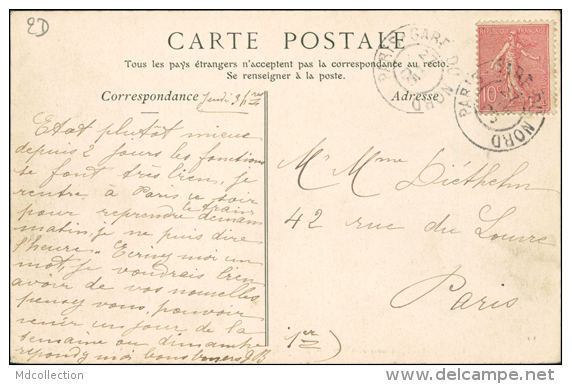 2D
CARTE POSTALE
Tous les pays étrangers n'acceptent pas la correspondance au recto.
Se renseigner à la poste.
Correspondance Jeudi
Adresse
PARIS GARE DU NORD
PARIS GARE DU NORD
10
Etat plutôt mieux
depuis 2 jours les fonctions
se font très bien, je
rentre à Paris ce soir
pour reprendre le train demain
matin, je ne puis dire
l'heure. Ecrivez moi un
mot, je voudrais bien
avoir de vos nouvelles
pensez vous pouvoir
venir un jour de la
semaine ou dimanche
répondez moi bons baisers JB
Mr Mme Diethelm
42 rue du Louvre
Paris
1er
Mdcollection
delcampe.net